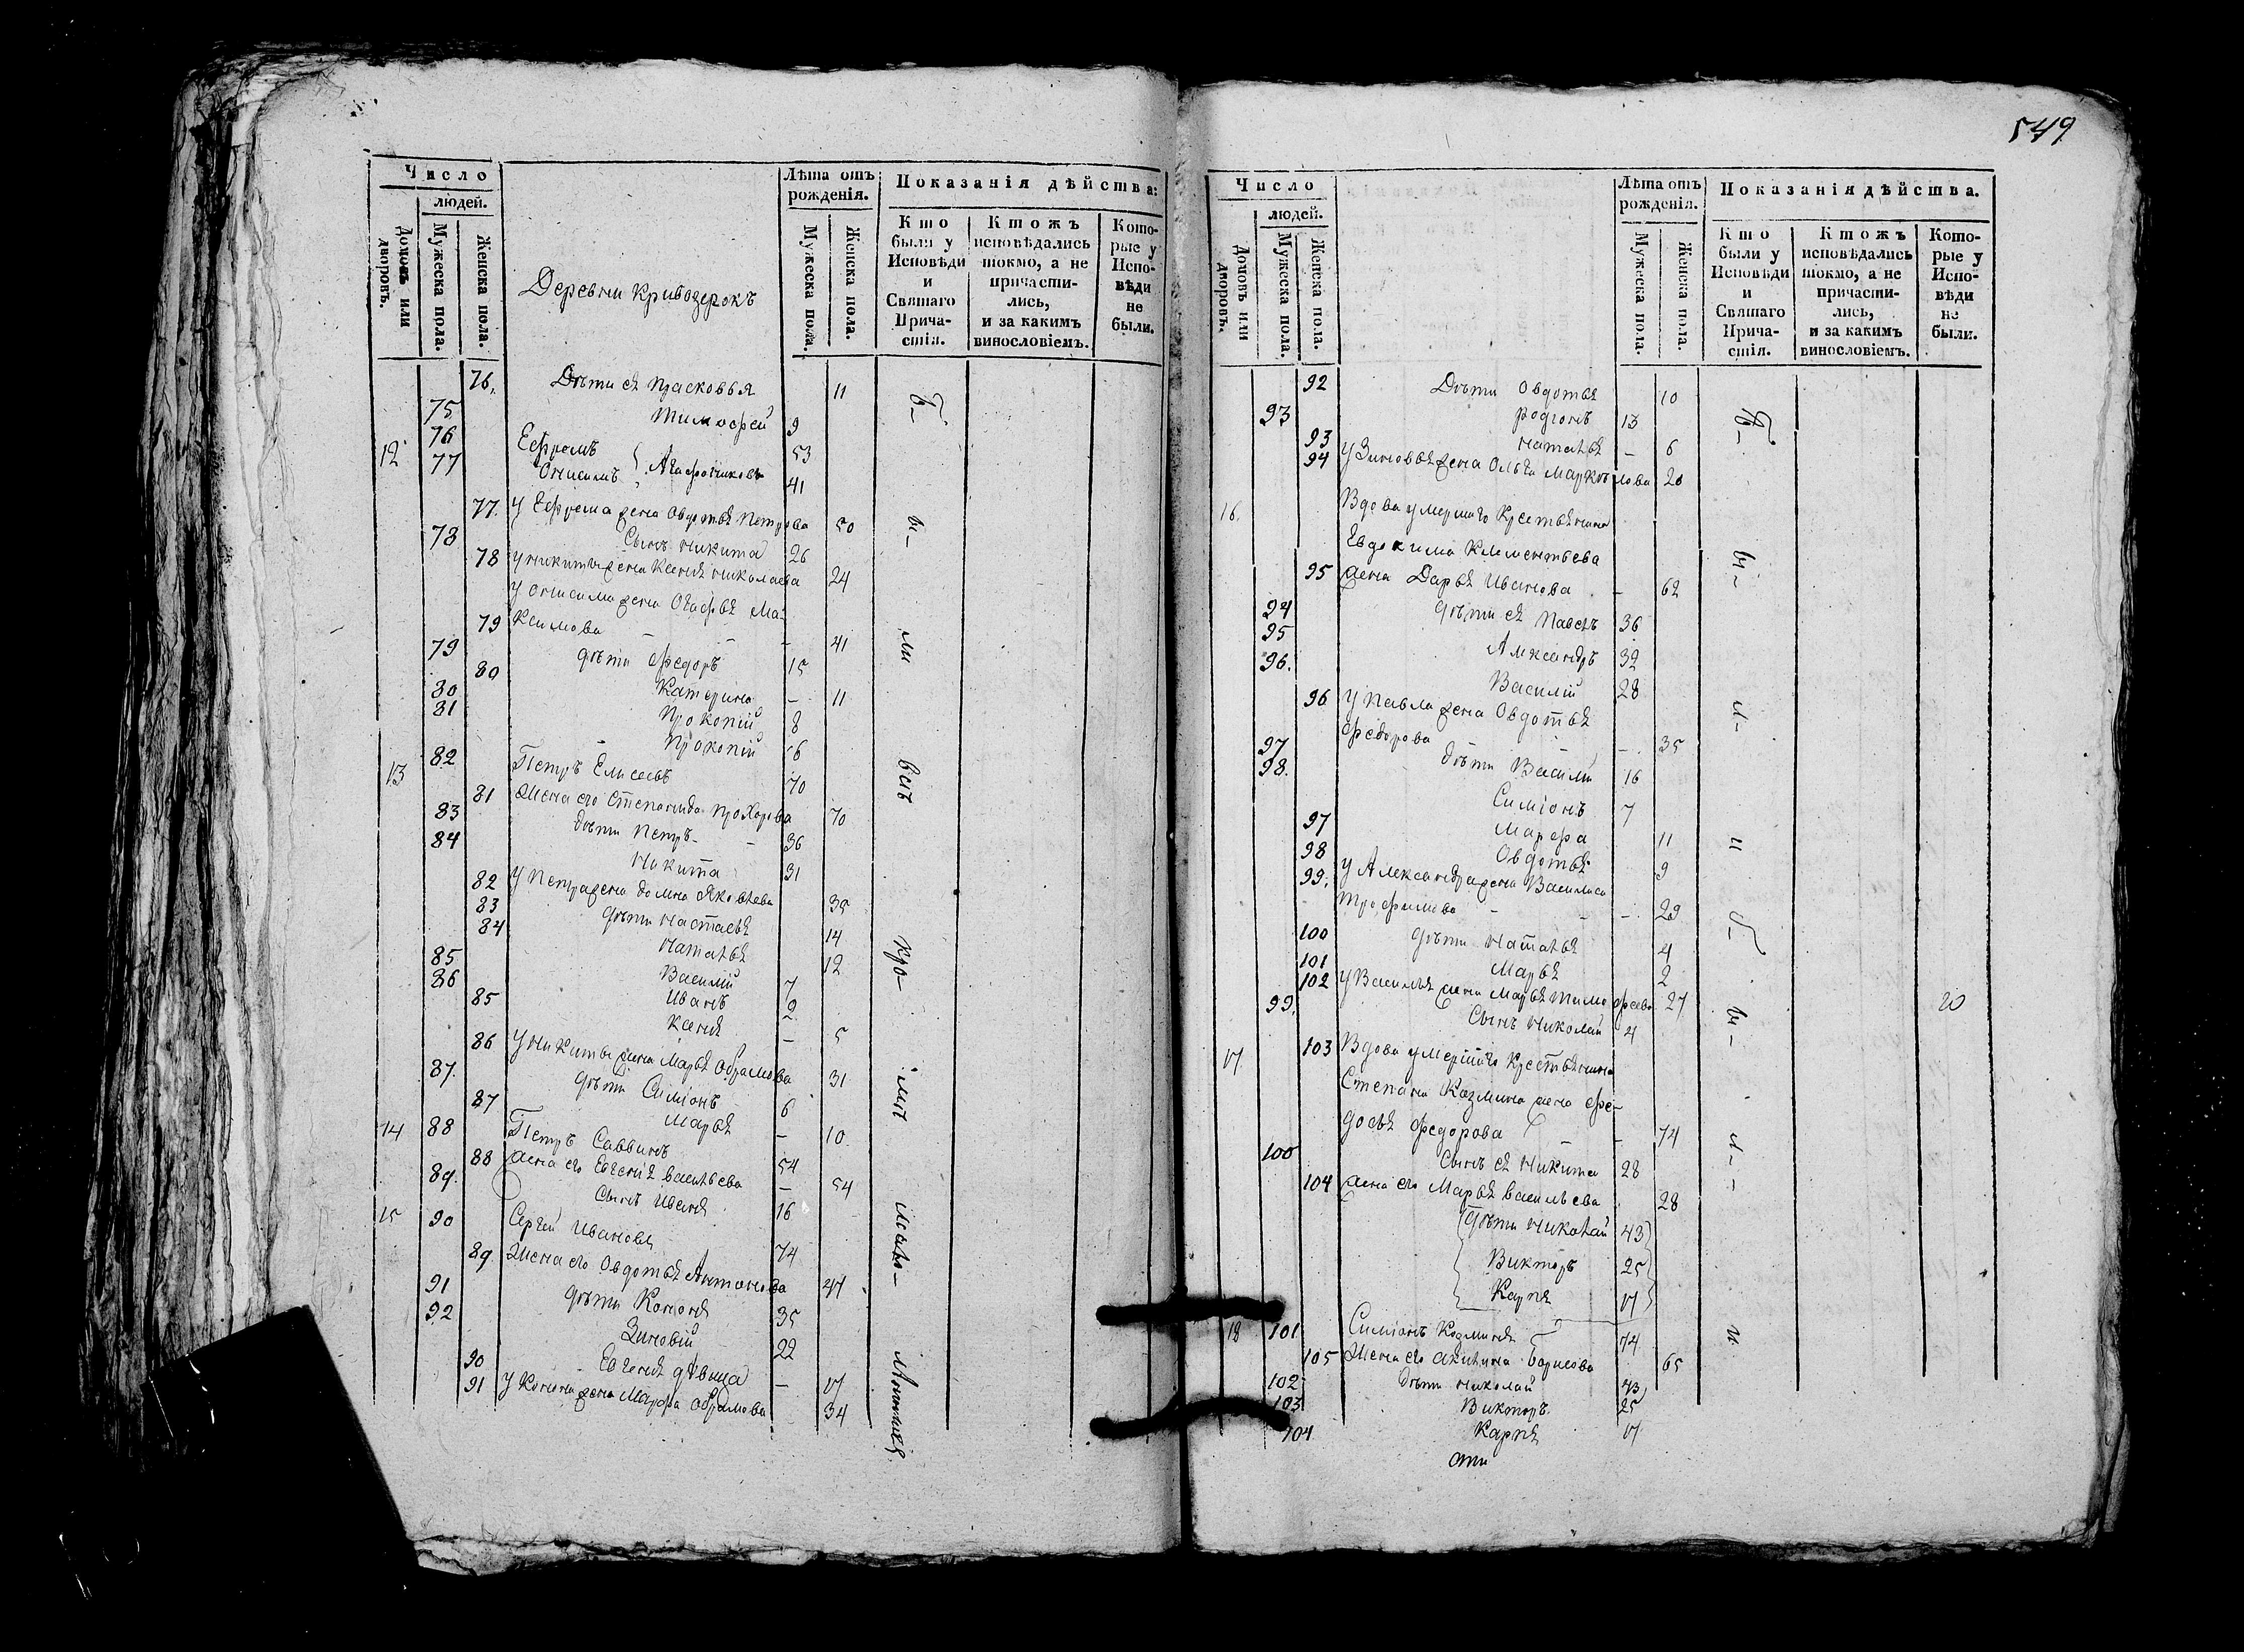 549
Число
людей.
Домовъ или дворовъ.
Мужеска пола.
Женска пола.
Лѣта отъ рожденія.
Мужеска пола.
Женска пола.
Показанія дѣйства:
Кто были у Исповѣди и Святаго Причастія.
Ктожъ исповѣдались токмо, а не причастились, и за какимъ винословіемъ.
Которые у Исповѣди не были.
Деревни Кривозерокъ
76. Дѣти ея Прасковья 11
75 Тимофей 9
12 76 Ефремъ 53
77 Онисимъ } Агафониковы 41
77. У Ефрема жена Овдотья Петрова 50
78 Сынъ Никита 26
78 У Никиты жена Ксенія Николаева 24
У Онисима жена Агафья Ма-
79 ксимова - - - 41
79 дѣти Федоръ 15
80 Катерина - 11
80 Прокопій 8
81 Прокопій 6
13 82 Петръ Елисеевъ 70
81 Жена его Степанида Прохорова 70
83 дѣти Петръ - - 36
84 Никита 31
82 У Петра жена Домна Яковлева 35
83 дѣти Настасья 14
84 Наталья 12
85 Василій 7
86 Иванъ 2
85 Ксенія - 5
86 У Никиты жена Марья Обрамова 31
87. дѣти Симіонъ 6
87 Марья - 10
14 88 Петръ Саввинъ 54
88 жена его Евгенія Васильева - 54
89. Сынъ Иванъ 16
15 90 Сергей Ивановъ 74
89. Жена его Овдотья Антонова 47
91 дѣти Кононъ 35
92 Зиновій 22
90 Евгенія дѣвица - 17
91 У Конона жена Марфа Обрамова 34
Число
людей.
Домовъ или дворовъ.
Мужеска пола.
Женска пола.
Лѣта отъ рожденія.
Мужеска пола.
Женска пола.
Показанія дѣйства.
Кто были у Исповѣди и Святаго Причастія.
Ктожъ исповѣдались токмо, а не причастились, и за какимъ винословіемъ.
Которые у Исповѣди не были.
92 Дѣти Овдотья 10
93 Родіонъ 13
93 Наталья - 6
94 У Зиновья жена Ольга Маркелова 20
16. Вдова умершаго Крестьянина
Евдокима Климентьева
95 жена Дарья Иванова - 62
94 дѣти ея Павелъ 36
95 Александръ 32
96. Василій 28
96 У Павла жена Овдотья
Федорова - - 35
97 дѣти Василій 16
98. Симіонъ 7
97 Марфа 11
98 Овдотья 9
99. У Александра жена Василиса
Трофимова - - - 29
100 дѣти Наталья 4
101 Марья 2
102 У Василья жена Марья Тимофеева 27 20
99. Сынъ Николай 4
17 103 Вдова умершаго Крестьянина
Степана Козмина жена Фе-
досья Федорова - - 74
100 Сынъ ея Никита 28
104 жена его Марья Васильева 28
дѣти Николай 43
Викторъ 25
Карпъ 17
18 101 Симіонъ Козминъ 74
105 Жена его Акилина Борисова 65
102 дѣти Николай 43
103 Викторъ 25
104 Карпъ 17